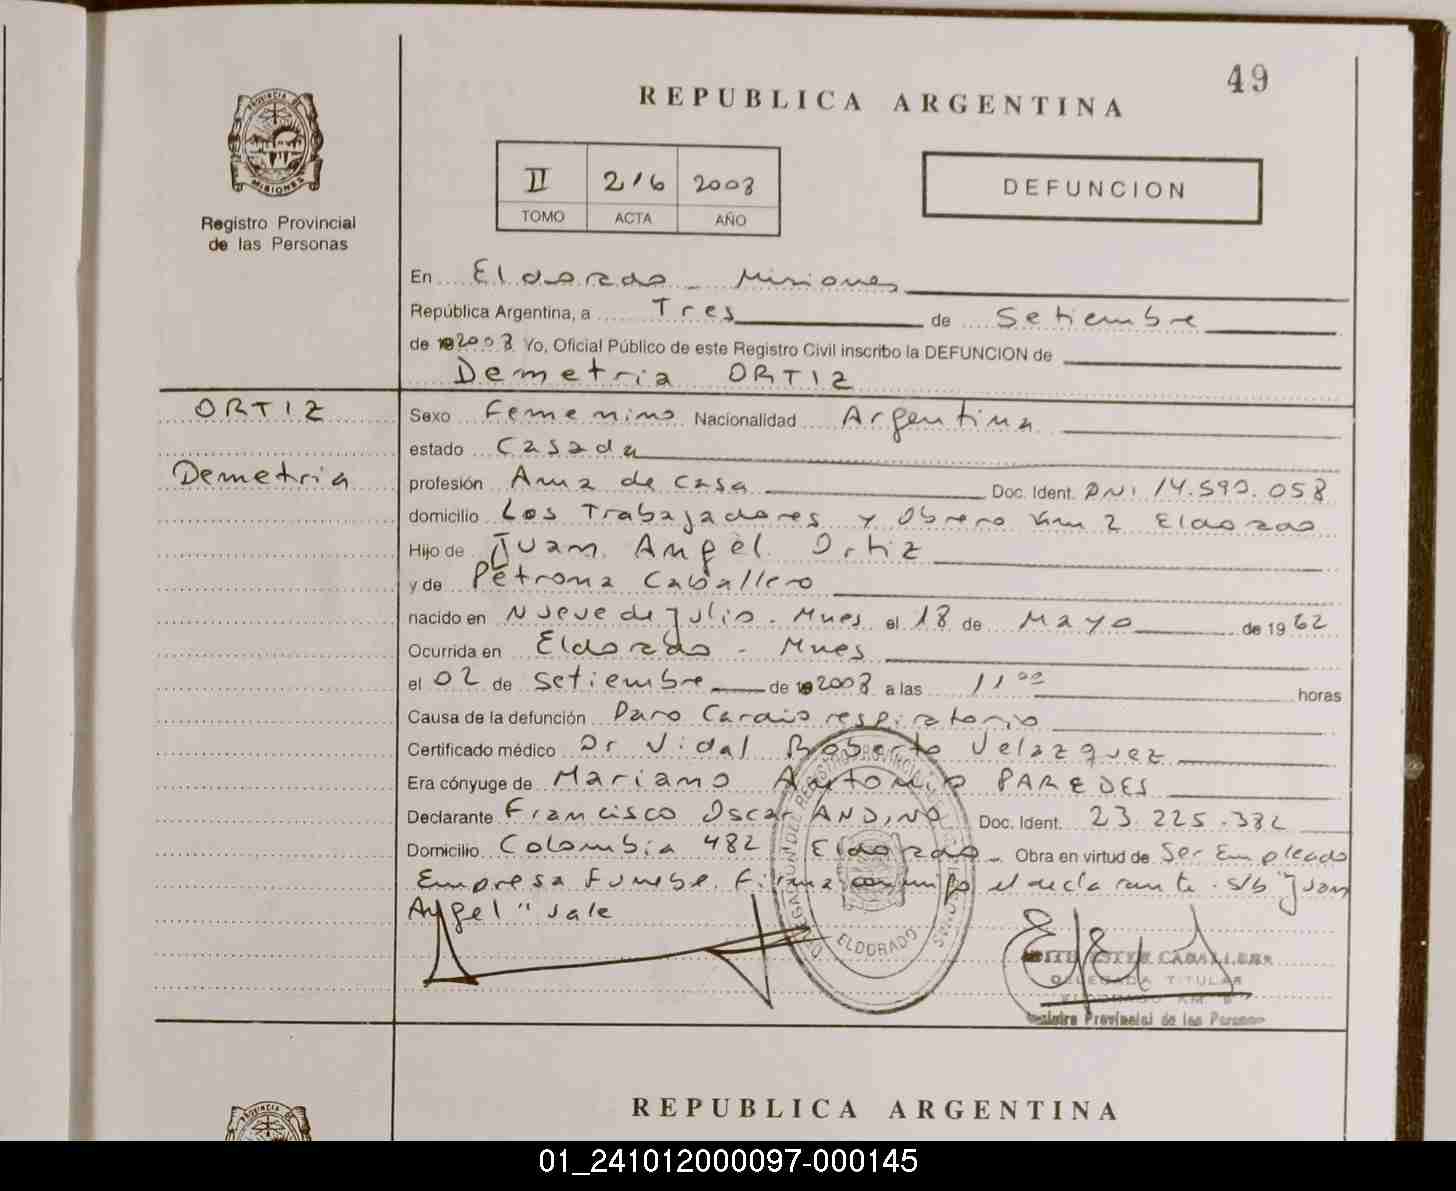 49
REPUBLICA ARGENTINA
PROVINCIA DE
MISIONES
Registro Provincial
de las Personas
II 216 2008
TOMO ACTA AÑO
DEFUNCION
En Eldorado - Misiones
República Argentina, a Tres de Setiembre
de 2008 Yo, Oficial Público de este Registro Civil inscribo la DEFUNCION de
Demetria ORTIZ
ORTIZ
Demetria
Sexo Femenino Nacionalidad Argentina
estado Casada
profesión Ama de casa Doc. Ident. DNI 14.590.058
domicilio Los Trabajadores y Obrero Km 2 Eldorado
Hijo de Juan Angel Ortiz
y de Petrona Caballero
nacido en Nueve de Julio - Mnes el 18 de Mayo de 1962
Ocurrida en Eldorado - Mnes
el 02 de Setiembre de 2008 a las 11 00 horas
Causa de la defunción Paro Cardio respiratorio
Certificado médico Dr Vidal Roberto Velazquez
Era cónyuge de Mariano Antonio PAREDES
Declarante Francisco Oscar ANDINO Doc. Ident. 23.225.382
Domicilio Colombia 482 Eldorado - Obra en virtud de Ser Empleado
Empresa Funebe. Firma conmigo el declarante. s/b "Juan
Angel" vale
ELDORADO
ESTER CABALLERO
DELEGADA TITULAR
Registro Provincial de las Personas
REPUBLICA ARGENTINA
PROVINCIA DE
01_241012000097-000145